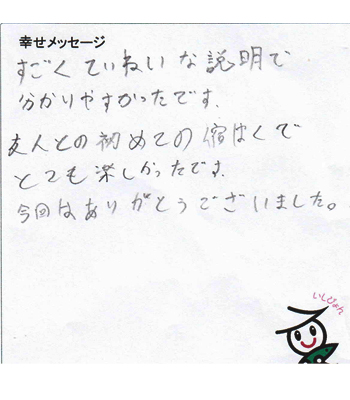 幸せメッセージ
すごくていねいな説明で
分かりやすかったです.
友人との初めての宿はくで
とても楽しかったです.
今回はありがとうございました。
いしぴょん